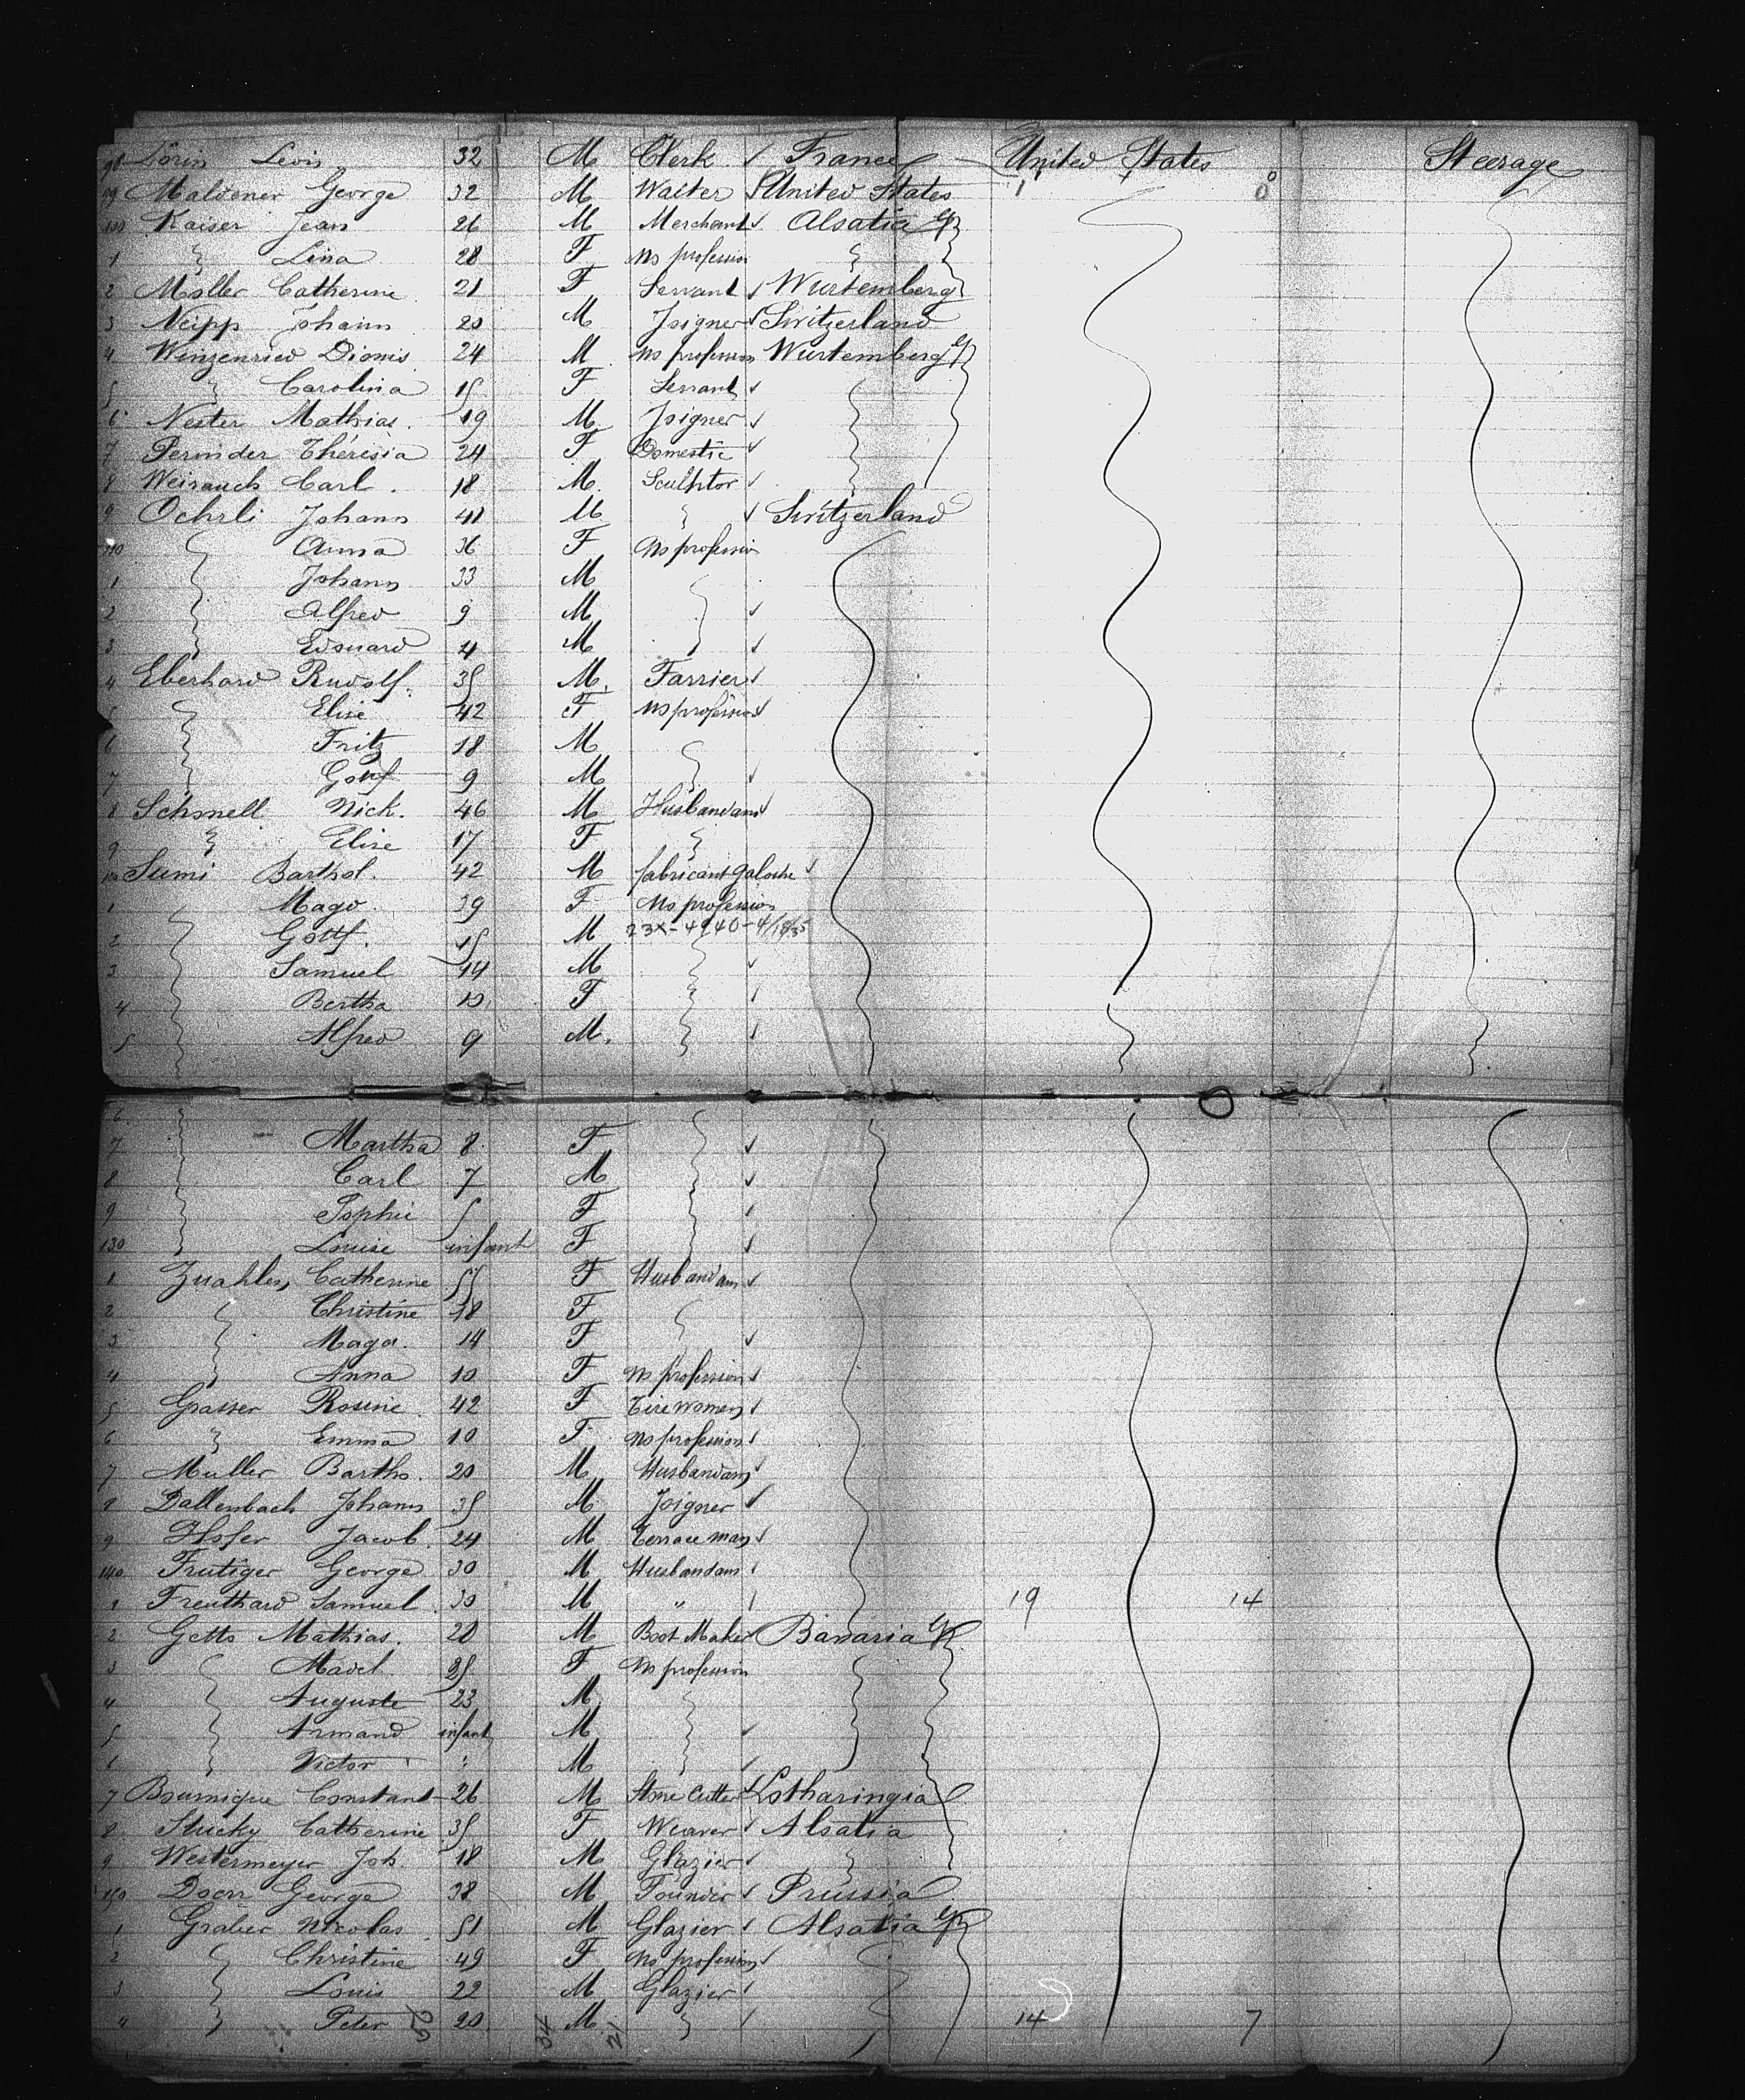 98 Lörin Levis 32 M Clerk ✓ France United States Steerage
99 Maldener George 32 M Waiter United States 1 0
100 Kaiser Jean 26 M Merchant ✓ Alsatia
1 " Lina 28 F No profession "
2 Moller Catherine 21 F Servant ✓ Wurtemberg
3 Neipp Johann 20 M Joigner ✓ Switzerland
4 Winzenried Dionis 24 M No profession Wurtemberg
5 " Carolina 15 F Servant ✓
6 Nester Mathias. 19 M Joigner ✓
7 Perinder Thérésia 24 F Domestic ✓
8 Weirauch Carl. 18 M. Sculptor ✓
9 Ochrli Johann 41 M " ✓ Switzerland
110 Anna 36 F No profession
1 Johann 33 M
2 Alfred 9 M ✓
3 Edouard 4 M ✓
4 Eberhard Rudolf. 35 M. Farrier ✓
5 Elise 42 F No profession ✓
6 Fritz 18 M
7 Gottf 9 M ✓
8 Schmell Nick. 46 M Husbandam ✓
9 " Elise 17 F "
120 Sumi Barthol. 42 M fabricant galoche ✓
1 Magd. 39 F No profession
2 Gottf. 15 M 23X-4940-4/18/35
3 Samuel 14 M ✓
4 Bertha 10 F " ✓
5 Alfred 9 M. ✓
6
7 Martha 8 F ✓
8 Carl 7 M ✓
9 Sophie 5 F ✓
130 Louise infant F ✓
1 Zuahlen Catherine 55 F Husbandam ✓
2 Christine 18 F
3 Magd. 14 F ✓
4 Anna 10 F No profession ✓
5 Grasser Rosine 42 F Tirewomen ✓
6 " Emma 10 F No profession ✓
7 Muller Bartho. 20 M Husbandam ✓
8 Dallenbach Johann 35 M Joigner ✓
9 Hofer Jacob. 24 M Terrace man ✓
140 Frutiger George 30 M Husbandam ✓
1 Freuthard Samuel. 30 M " ✓ 19 14
2 Getto Mathias. 28 M Boot Maker Bavaria
3 Madel. 25 F No profession
4 Auguste 23 M
5 Armand infant M ✓
6 Victor " M ✓
7 Bournique Constant 26 M Stone Cutter ✓ Lotharingia
8 Stucky Catherine 35 F Weaver ✓ Alsatia
9 Westermeyer Joh 18 M Glazier ✓ "
150 Doerr George 38 M Founder ✓ Prussia
1 Gralier Nicolas. 51 M Glazier ✓ Alsatia
2 Christine 49 F No profession ✓
3 Louis 22 M Glazier ✓
4 Peter 20 M " ✓ 14 7
34 21